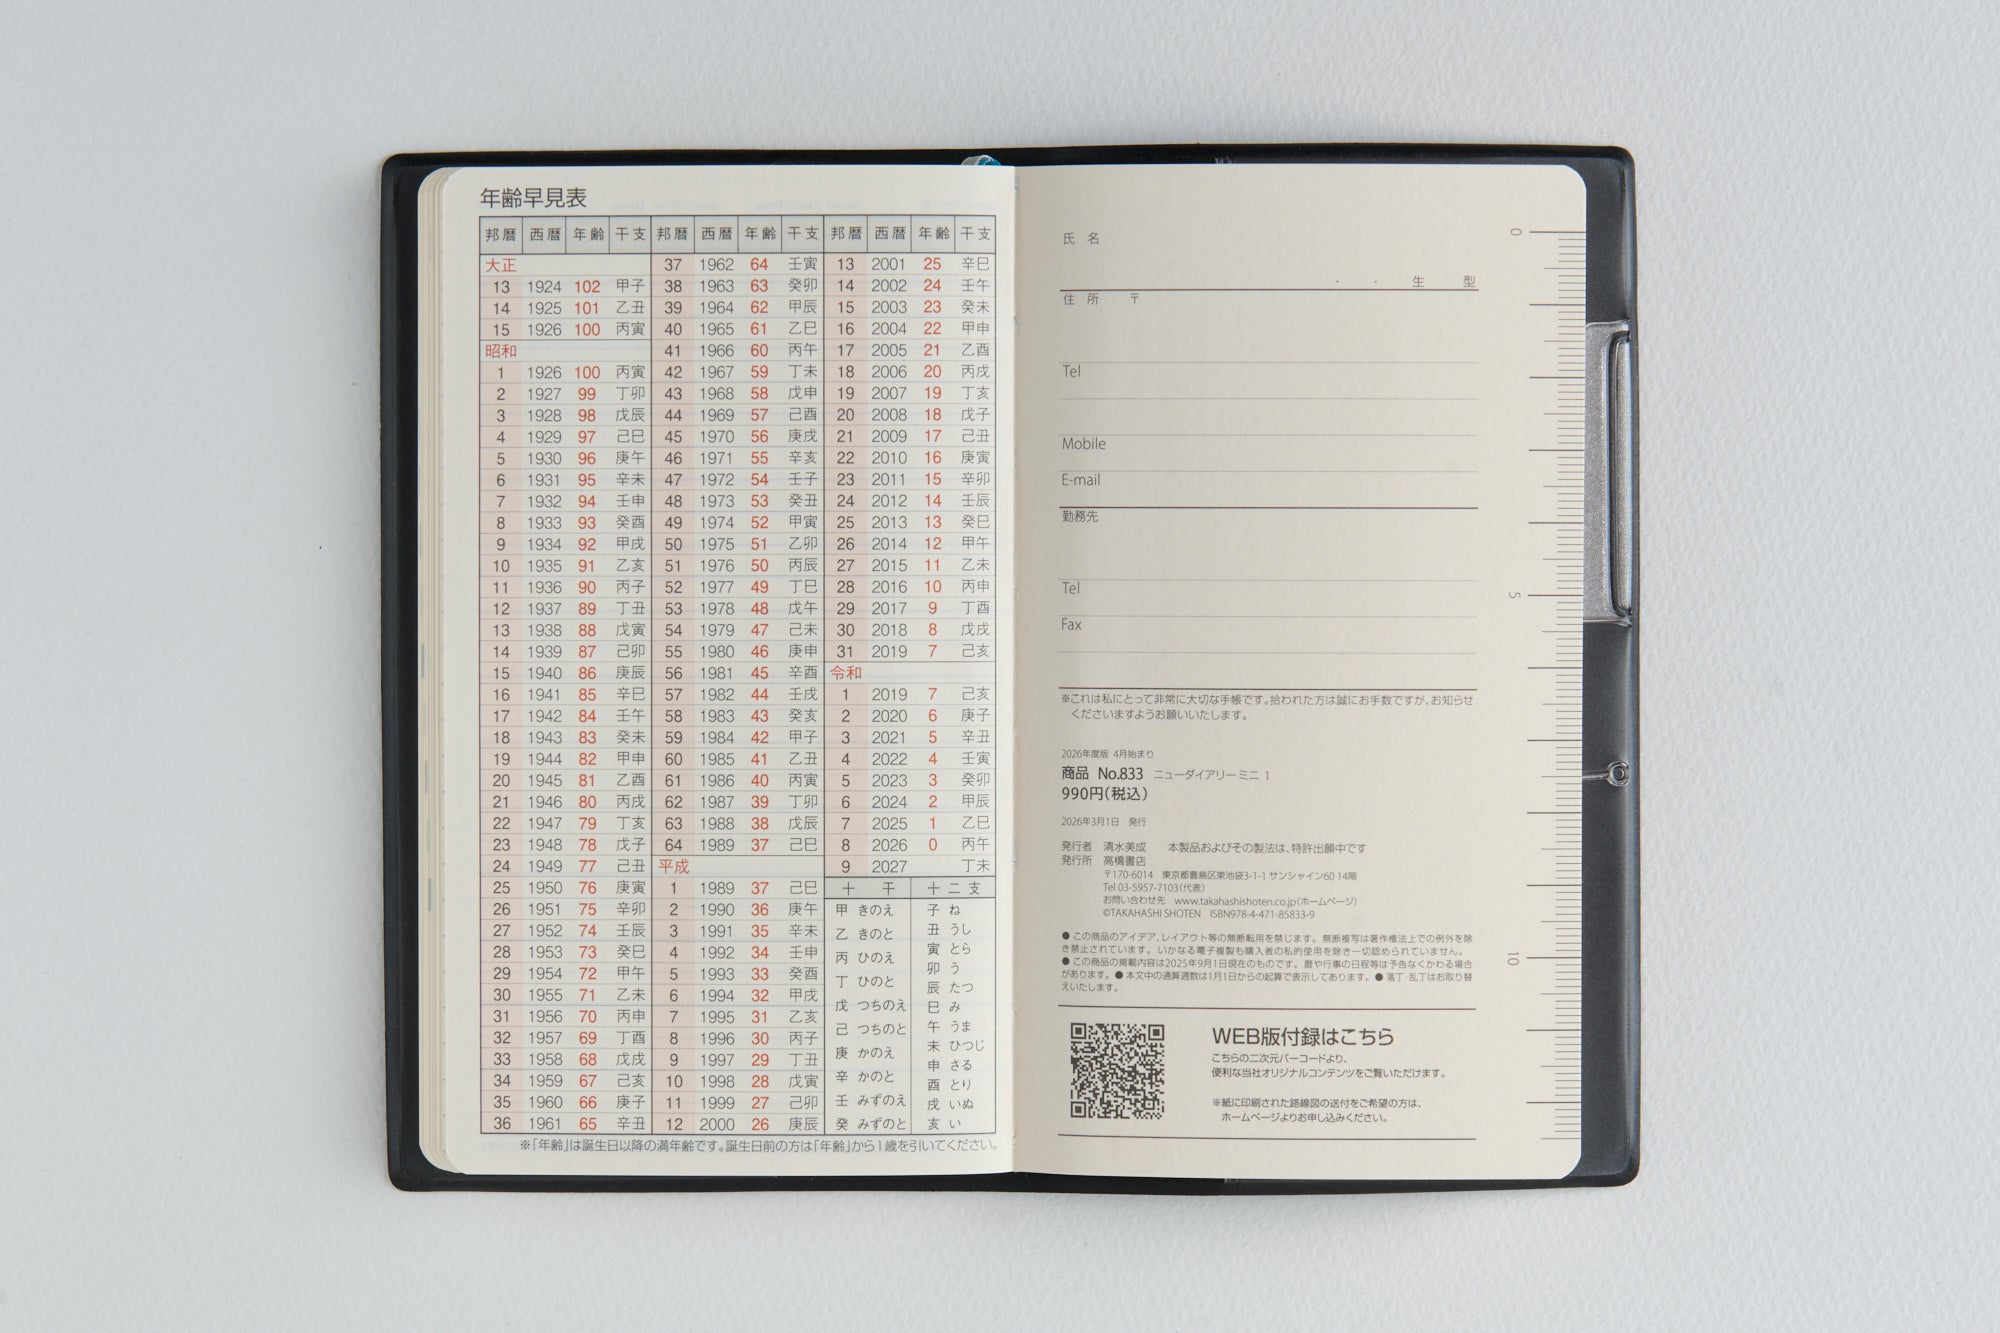 年齢早見表
邦暦 西暦 年齢 干支
大正
13 1924 102 甲子
14 1925 101 乙丑
15 1926 100 丙寅
昭和
1 1926 100 丙寅
2 1927 99 丁卯
3 1928 98 戊辰
4 1929 97 己巳
5 1930 96 庚午
6 1931 95 辛未
7 1932 94 壬申
8 1933 93 癸酉
9 1934 92 甲戌
10 1935 91 乙亥
11 1936 90 丙子
12 1937 89 丁丑
13 1938 88 戊寅
14 1939 87 己卯
15 1940 86 庚辰
16 1941 85 辛巳
17 1942 84 壬午
18 1943 83 癸未
19 1944 82 甲申
20 1945 81 乙酉
21 1946 80 丙戌
22 1947 79 丁亥
23 1948 78 戊子
24 1949 77 己丑
25 1950 76 庚寅
26 1951 75 辛卯
27 1952 74 壬辰
28 1953 73 癸巳
29 1954 72 甲午
30 1955 71 乙未
31 1956 70 丙申
32 1957 69 丁酉
33 1958 68 戊戌
34 1959 67 己亥
35 1960 66 庚子
36 1961 65 辛丑
邦暦 西暦 年齢 干支
37 1962 64 壬寅
38 1963 63 癸卯
39 1964 62 甲辰
40 1965 61 乙巳
41 1966 60 丙午
42 1967 59 丁未
43 1968 58 戊申
44 1969 57 己酉
45 1970 56 庚戌
46 1971 55 辛亥
47 1972 54 壬子
48 1973 53 癸丑
49 1974 52 甲寅
50 1975 51 乙卯
51 1976 50 丙辰
52 1977 49 丁巳
53 1978 48 戊午
54 1979 47 己未
55 1980 46 庚申
56 1981 45 辛酉
57 1982 44 壬戌
58 1983 43 癸亥
59 1984 42 甲子
60 1985 41 乙丑
61 1986 40 丙寅
62 1987 39 丁卯
63 1988 38 戊辰
64 1989 37 己巳
平成
1 1989 37 己巳
2 1990 36 庚午
3 1991 35 辛未
4 1992 34 壬申
5 1993 33 癸酉
6 1994 32 甲戌
7 1995 31 乙亥
8 1996 30 丙子
9 1997 29 丁丑
10 1998 28 戊寅
11 1999 27 己卯
12 2000 26 庚辰
邦暦 西暦 年齢 干支
13 2001 25 辛巳
14 2002 24 壬午
15 2003 23 癸未
16 2004 22 甲申
17 2005 21 乙酉
18 2006 20 丙戌
19 2007 19 丁亥
20 2008 18 戊子
21 2009 17 己丑
22 2010 16 庚寅
23 2011 15 辛卯
24 2012 14 壬辰
25 2013 13 癸巳
26 2014 12 甲午
27 2015 11 乙未
28 2016 10 丙申
29 2017 9 丁酉
30 2018 8 戊戌
31 2019 7 己亥
令和
1 2019 7 己亥
2 2020 6 庚子
3 2021 5 辛丑
4 2022 4 壬寅
5 2023 3 癸卯
6 2024 2 甲辰
7 2025 1 乙巳
8 2026 0 丙午
9 2027 丁未
十干
甲 きのえ
乙 きのと
丙 ひのえ
丁 ひのと
戊 つちのえ
己 つちのと
庚 かのえ
辛 かのと
壬 みずのえ
癸 みずのと
十二支
子 ね
丑 うし
寅 とら
卯 う
辰 たつ
巳 み
午 うま
未 ひつじ
申 さる
酉 とり
戌 いぬ
亥 い
※「年齢」は誕生日以降の満年齢です。誕生日前の方は「年齢」から1歳を引いてください。
氏 名
・ ・ 生 型
住 所 〒
Tel
Mobile
E-mail
勤務先
Tel
Fax
※これは私にとって非常に大切な手帳です。拾われた方は誠にお手数ですが、お知らせ
くださいますようお願いいたします。
2026年度版 4月始まり
商品 No.833 ニューダイアリー ミニ 1
990円(税込)
2026年3月1日 発行
発行者 清水美成 本製品およびその製法は、特許出願中です
発行所 高橋書店
〒170-6014 東京都豊島区東池袋3-1-1 サンシャイン60 14階
Tel 03-5957-7103(代表)
お問い合わせ先 www.takahashishoten.co.jp(ホームページ)
©TAKAHASHI SHOTEN ISBN978-4-471-85833-9
● この商品のアイデア、レイアウト等の無断転用を禁じます。無断複写は著作権法上での例外を除
き禁止されています。いかなる電子複製も購入者の私的使用を除き一切認められていません。
● この商品の掲載内容は2025年9月1日現在のものです。暦や行事の日程等は予告なくかわる場合
があります。● 本文中の通算週数は1月1日からの起算で表示してあります。● 落丁・乱丁はお取り替
えいたします。
WEB版付録はこちら
こちらの二次元バーコードより、
便利な当社オリジナルコンテンツをご覧いただけます。
※紙に印刷された路線図の送付をご希望の方は、
ホームページよりお申し込みください。
0
5
10